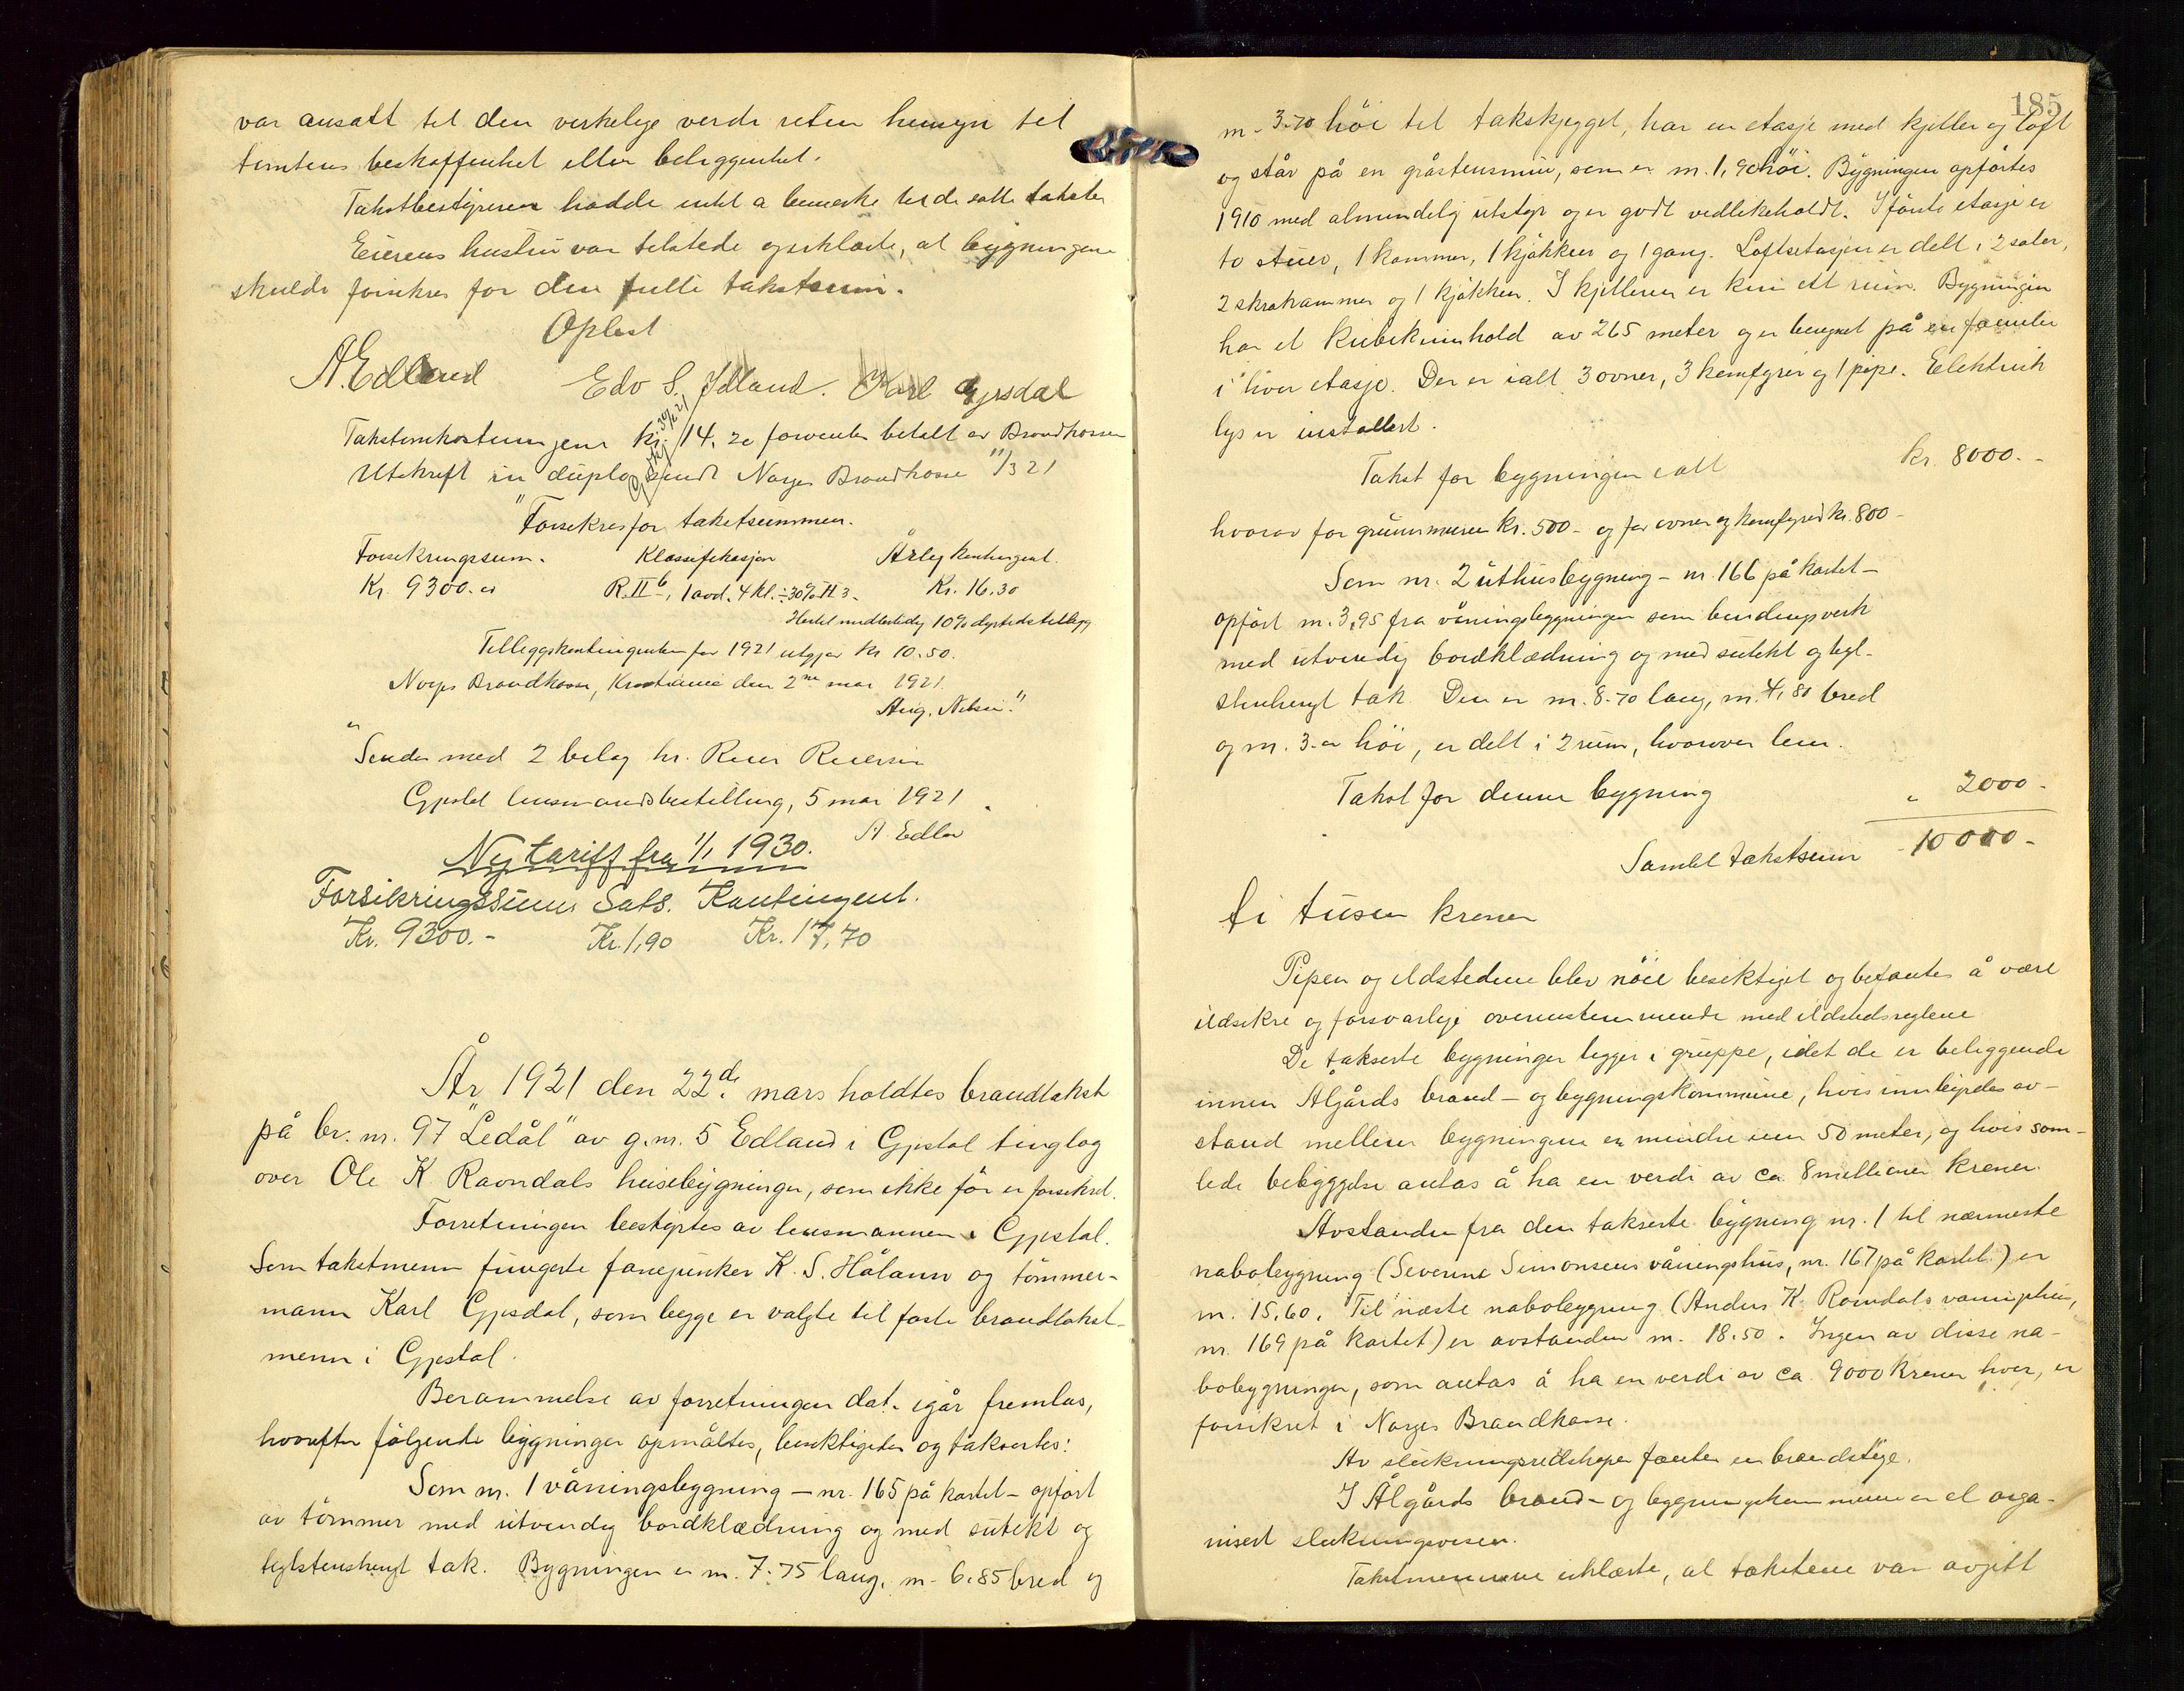 var ansatt til den virkelige verdi uten hensyn til
tomtens beskaffenhet eller beliggenhet.
Takstbestyreren hadde intet å bemerke til de satte takster
Eierens hustru var tilstede og erklærte, at bygningene
skulde forsikres for den fulle takstsum.
Oplest
A. Edland Edv S. Idland. Karl Gjesdal
Takstomkostningene kr. 14,20 forventes betalt av Brandkassen
Utskrift in duplo sendt Norges Brandkasse 11/3 21
"Forsikres for takstsummen.
Forsikringssum. Klassifikasjon Årlig kontingent.
Kr. 9300.00 R. II b, 1 avd. 4 kl. ÷ 30% H 3. Kr. 16.30
Hertil midlertidig 10% dyrtidstillegg
Tilleggskontingenten for 1921 utgjør kr 10.50.
Norges Brandkasse, Kristiania den 2 mai 1921.
Aug. Nilsen."
"Sendes med 2 bilag hr.
Gjestal lensmandsbestilling, 5 mai 1921.
A. Edland
Ny tariff fra 1/1 1930.
Forsikringssum Sats. Kontingent.
Kr. 9300.- Kr. 1,90 Kr. 17,70
År 1921 den 22de mars holdtes brandtakst
på br. nr. 97 "Ledål" av g. nr. 5 Edland i Gjestal tinglag
over Ole K Ravndals husebygninger, som ikke før er forsikret.
Forretningen bestyrtes av lensmannen i Gjestal.
Som takstmenn fungerte fanejunker K. S. Håland og tømmer-
mann Karl Gjesdal, som begge er valgte til faste brandtakst-
menn i Gjestal.
Berammelse av forretningen dat. igår fremlas,
hvorefter følgende bygninger opmåltes, besiktigedes og takserte:
Som nr. 1 våningsbygning – nr. 165 på kartet – opført
av tømmer med utvendig bordklædning og med sutekt og
teglstenshengt tak. Bygningen er m. 7.75 lang, m. 6.85 bred og
185
m. 3.70 høi til takskjegget, har en etasje med kjeller og loft
og står på en gråstensmur, som er m. 1,90 høi. Bygningen opførtes
1910 med almindelig utstyr og er godt vedlikeholdt. I første etasje er
to stuer, 1 kammer, 1 kjøkken og 1 gang. Loftsetasjen er delt i 2 saler,
2 skråkammer og 1 kjøkken. I kjelleren er kun ett rum. Bygningen
har et kubikkinnhold av 265 meter og er beregnet på en familie
i hver etasje. Der er ialt 3 ovner, 3 komfyrer og 1 pipe. Elektrisk
lys er installert.
Takst for bygningen ialt kr. 8000.-
hvorav for grunnmuren kr. 500.- og for ovner og komfyrer kr. 800.-
Som nr. 2 uthusbygning – nr. 166 på kartet –
opført m. 3,95 fra våningsbygningen som bindingsverk
med utvendig bordklædning og med sutekt og tegl-
stenhengt tak. Den er m. 8.70 lang, m. 4,80 bred
og m. 3.00 høi, er delt i 2 rum, hvorover lem.
Takst for denne bygning " 2000.-
Samlet takstsum 10000.-
ti tusen kroner
Pipen og ildstedene blev nøie besiktiget og befantes å være
ildsikre og forsvarlige overensstemmende med ildstedsreglene.
De takserte bygninger ligger i gruppe, idet de er beliggende
innen Ålgårds brand- og bygningskommune, hvis innbyrdes av-
stand mellem bygningene er mindre enn 50 meter, og hvis sam-
lede bebyggelse antas å ha en verdi av ca. 8 millioner kroner.
Avstanden fra den takserte bygning nr. 1 til nærmeste
nabobygning (Severine Simonsens våningshus, nr. 167 på kartet) er
m. 15.60. Til næste nabobygning (Anders K. Ravndals våningshus,
nr. 169 på kartet) er avstanden m. 18.50. Ingen av disse na-
bobygninger, som antas å ha en verdi av ca. 9000 kroner hver, er
forsikret i Norges Brandkasse.
Av slukningsredskaper fantes en brandstige.
I Ålgårds brand- og bygningskommune er et orga-
nisert slukningsvesen.
Takstmennene erklærte, at takstene var avgitt